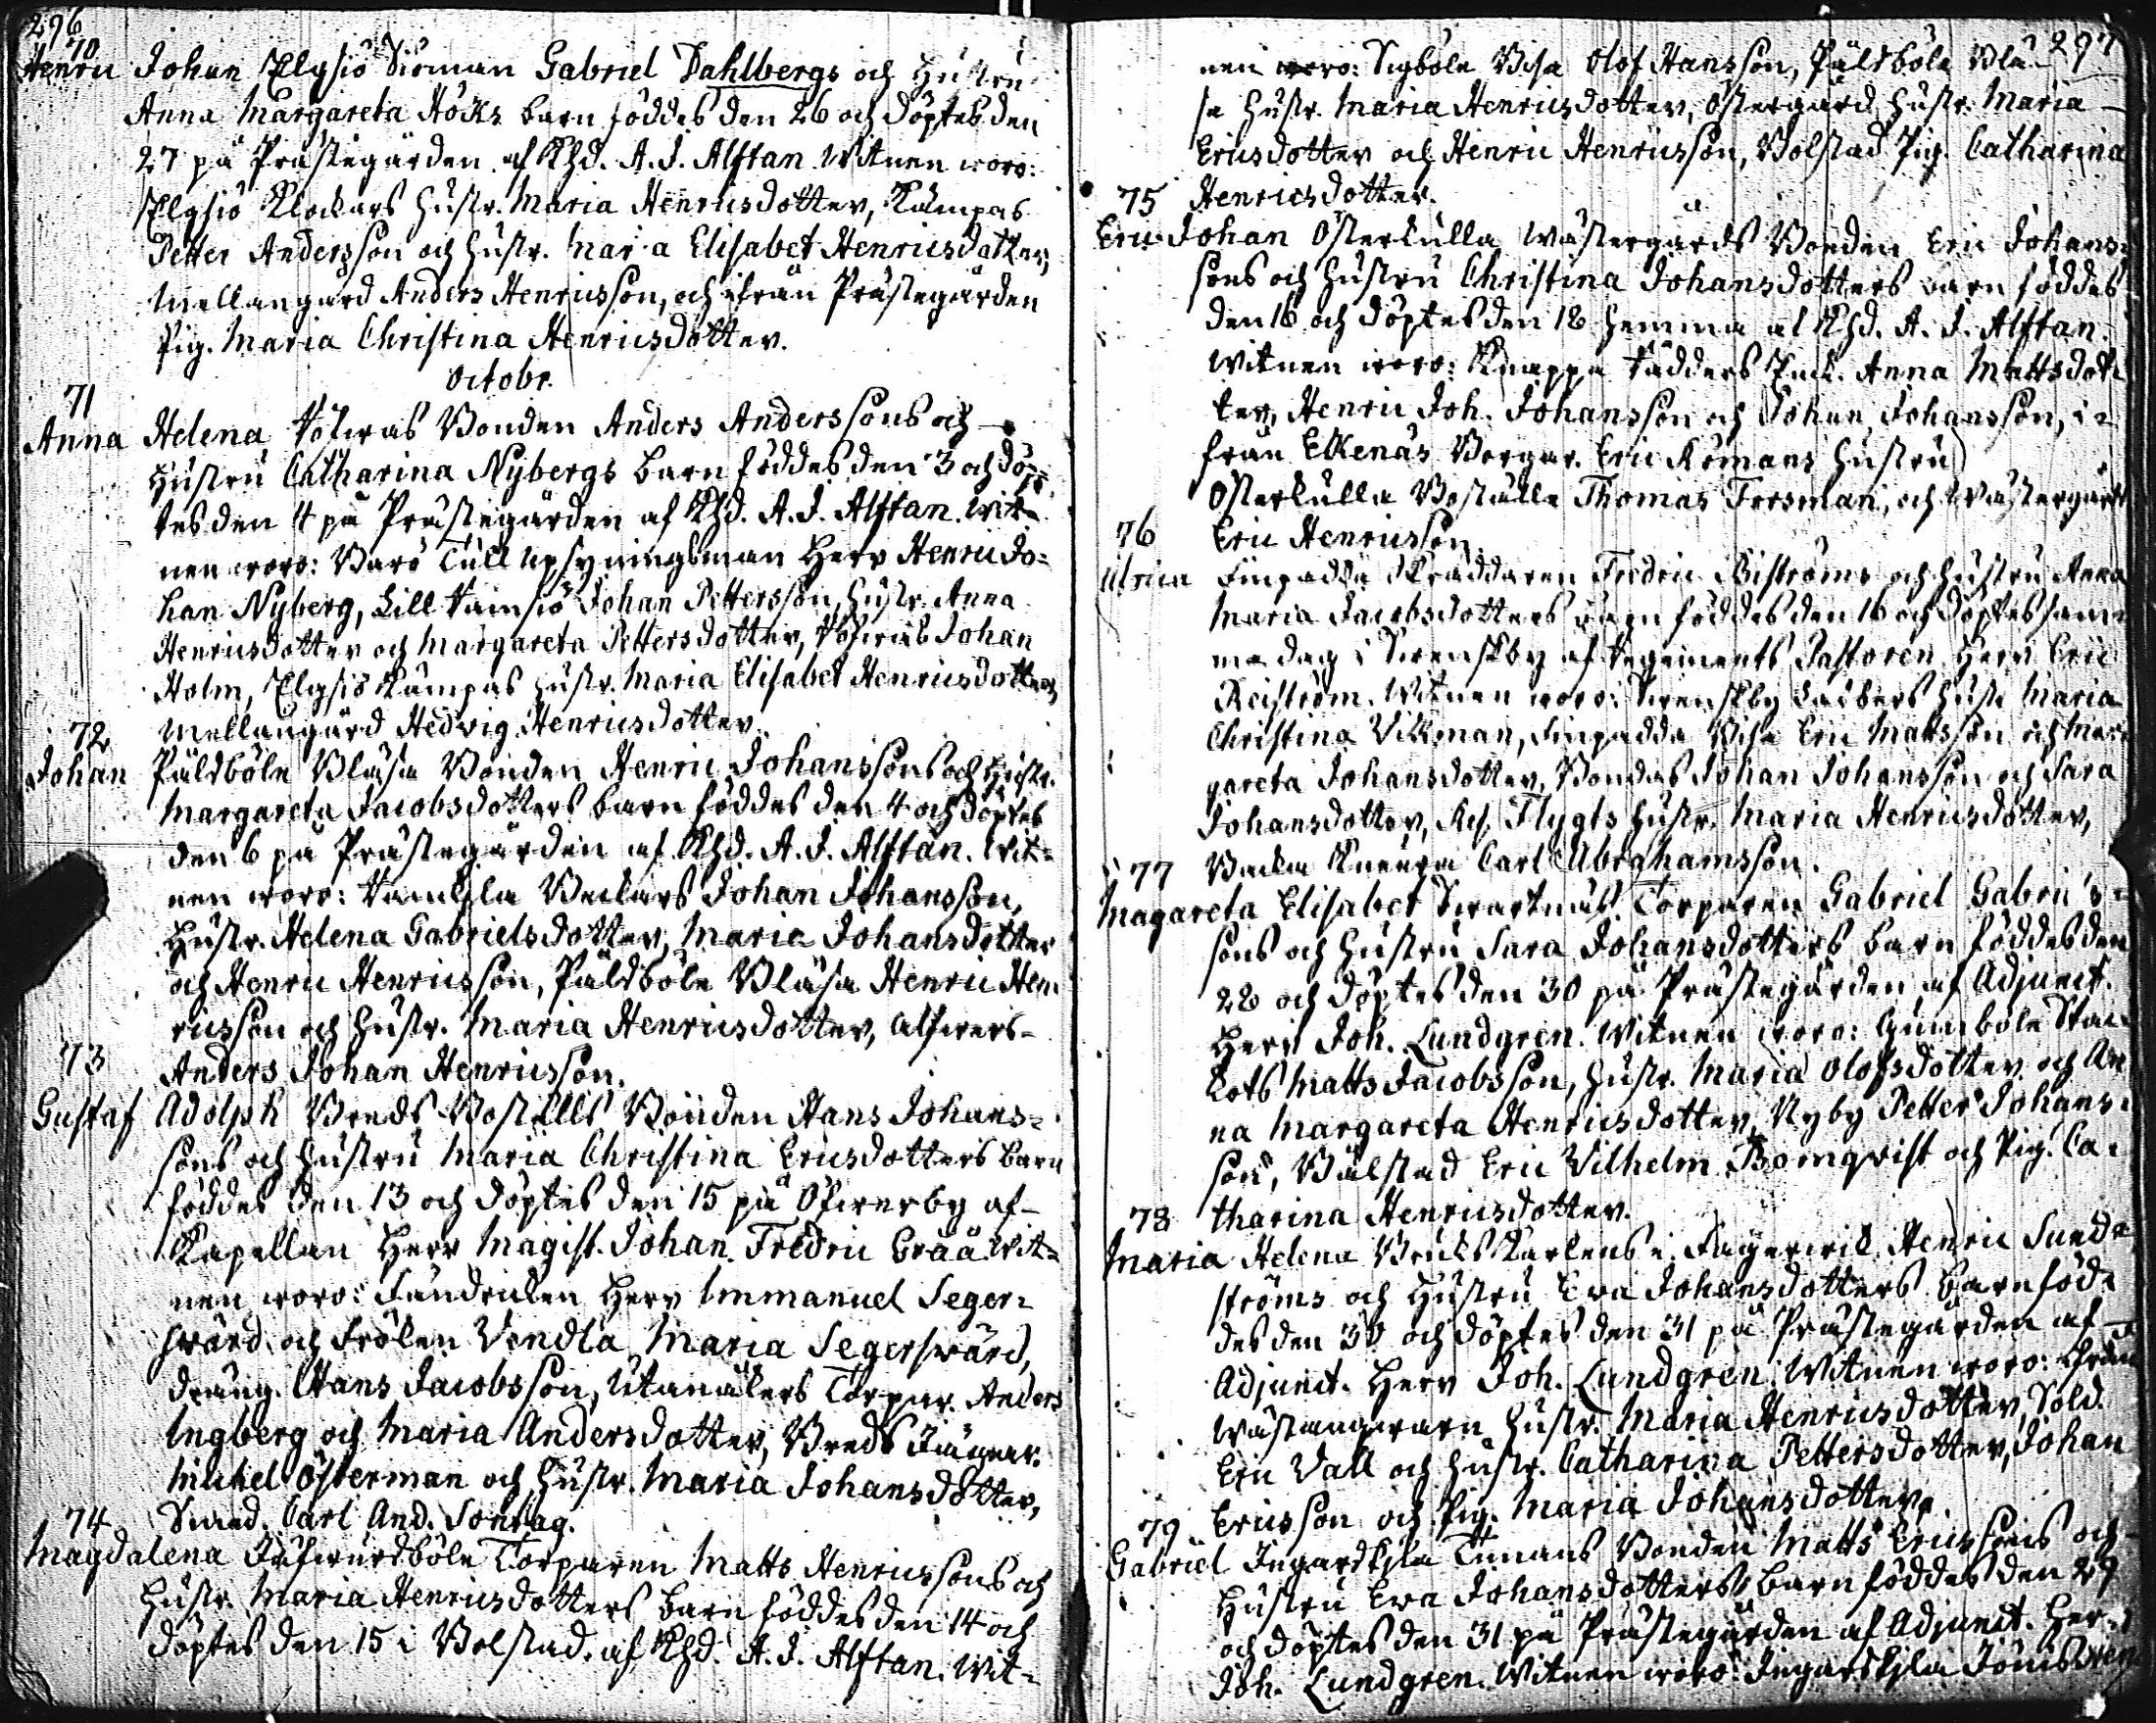 296
70
Henric Johan Elgsiö Siöman Gabriel Dahlbergs och Hustru
Anna Margareta Höcks barn föddes den 26 och döptes den
27 på Prästegården af Khd. A. J. Alftan. Witnen woro:
Elgsiö Klockars hustr. Maria Henricsdotter, Kämpas
Petter Andersson och hustr. Maria Elisabet Henricsdotter,
Mellangård Anders Henricsson, och ifrån Prästegården
Pig. Maria Christina Henricsdotter.
Octobr.
71
Anna Helena Bonden Anders Anderssons och
Hustru Catharina Nybergs barn föddes den 3 och döp=
tes den 4 på Prästegården af Khd. A. J. Alftan. Wit=
nen woro: Barö Tull upsyningsman Herr Henric Jo=
han Nyberg, Lill Ramsiö Johan Pettersson, hustr. Anna
Henricsdotter och Margareta Pettersdotter, Johan
Holm, Elgsiö Kämpas hustr. Maria Elisabet Henricsdotter,
Mellangård Hedvig Henricsdotter.
72
Johan Påldböle Blåsa Bonden Henric Johanssons och Hustr.
Margareta Jacobsdotters barn föddes den 4 och döptes
den 6 på Prästegården af Khd. A. J. Alftan. Wit=
nen woro: Johan Johansson,
Hustr. Helena Gabrielsdotter, Maria Johansdotter
och Henric Henricsson, Påldböle Blåsa Henric Hen=
ricsson och hustr. Maria Henricsdotter,
Anders Johan Henricsson.
73
Gustaf Adolph Breds Boställs Bonden Hans Johans=
sons och hustru Maria Christina Ericsdotters barn
föddes den 13 och döptes den 15 på Öfwerby af
Kapellan Herr Magist. Johan Fredric Crää. Wit=
nen woro: Fändricken Herr Immanuel Seger=
swärd och Frölen Vendla Maria Segerswärd,
dräng. Hans Jacobsson, Utanåkers Torpar. Anders
Ingberg och Maria Andersdotter, Breds
Michel Österman och hustr. Maria Johansdotter,
Smed. Carl And. Sontag.
74
Magdalena Torparen Matts Henricssons och
Hustr. Maria Henricsdotters barn föddes den 14 och
döptes den 15 i Bolstad af Khd. A. J. Alftan. Wit=
297
nen woro: Sigböle Bisa Olof Hansson, Påldböle Blå=
sa hustr. Maria Henricsdotter, Östergård hustr. Maria
Ericsdotter och Henric Henricsson, Bolstad Pig. Catharina
75 Henricsdotter.
Eric Johan Österkulla Wästergårds Bonden Eric Johans=
sons och hustru Christina Johansdotters barn föddes
den 16 och döptes den 18 hemma af Khd. A. J. Alftan.
Witnen woro: Knappa Anna Mattsdot=
ter, Henric Joh. Johansson och Johan Johansson, i=
från Ekenäs Borgar. Eric Römans hustru
Österkulla Boställe Thomas Forsman, och Wästergård
76 Eric Henricsson.
Ulrica Finpadda Skräddaren Fredric Biströms och hustru Anna
Maria Jacobsdotters barn föddes den 16 och döptes sam=
ma dag i Swenskby af Regements Pastoren Herr Eric
Reiström. Witnen woro: Swenskby hustr. Maria
Christina Vikman, Finpadda Bisa Eric Mattsson och Mar=
gareta Johansdotter, Bondas Johan Johansson och Sara
Johansdotter, Flygts hustr. Maria Henricsdotter,
77 Backa Carl Abrahamsson.
Magareta Elisabet Swartnäs Torparen Gabriel Gabriels=
sons och hustru Sara Johansdotters barn föddes den
28 och döptes den 30 på Prästegården af Adjunct.
Herr Joh. Lundgren. Witnen woro: Gumböle
Matts Jacobsson, hustr. Maria Olofsdotter och An=
na Margareta Henricsdotter, Nyby Petter Johans=
son, Bålstad Eric Vilhelm Bomqvist och Pig. Ca=
78 tharina Henricsdotter.
Maria Helena Bruks Karlens i Fagerwik Henric Sund=
ströms och Hustru Ewa Johansdotters barn föd=
des den 30 och döptes den 31 på Prästegården af
Adjunct. Herr Joh. Lundgren. Witnen woro:
hustr. Maria Henricsdotter, Sold.
Eric Vall och hustr. Catharina Pettersdotter, Johan
79 Ericsson och Pig. Maria Johansdotter.
Gabriel Ingarskila Bonden Matts Ericssons och
Hustru Ewa Johansdotters barn föddes den 29
och döptes den 31 på Prästegården af Adjunct. Herr
Joh. Lundgren. Witnen woro: Ingarskila